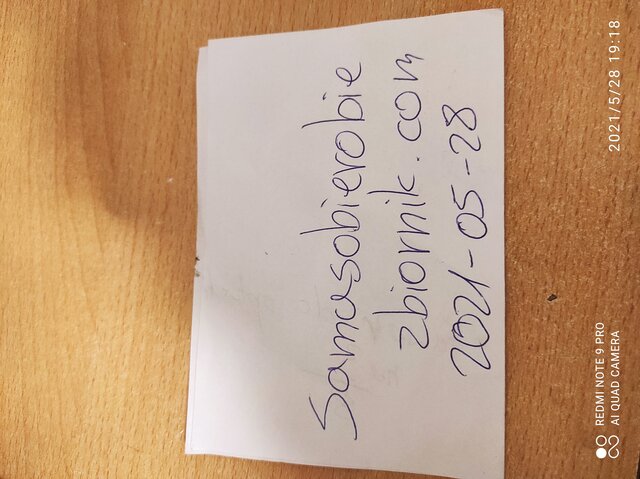 Samasobierobie
zbiornik.com
2021-05-28
2021/5/28 19:18
REDMI NOTE 9 PRO
AI QUAD CAMERA